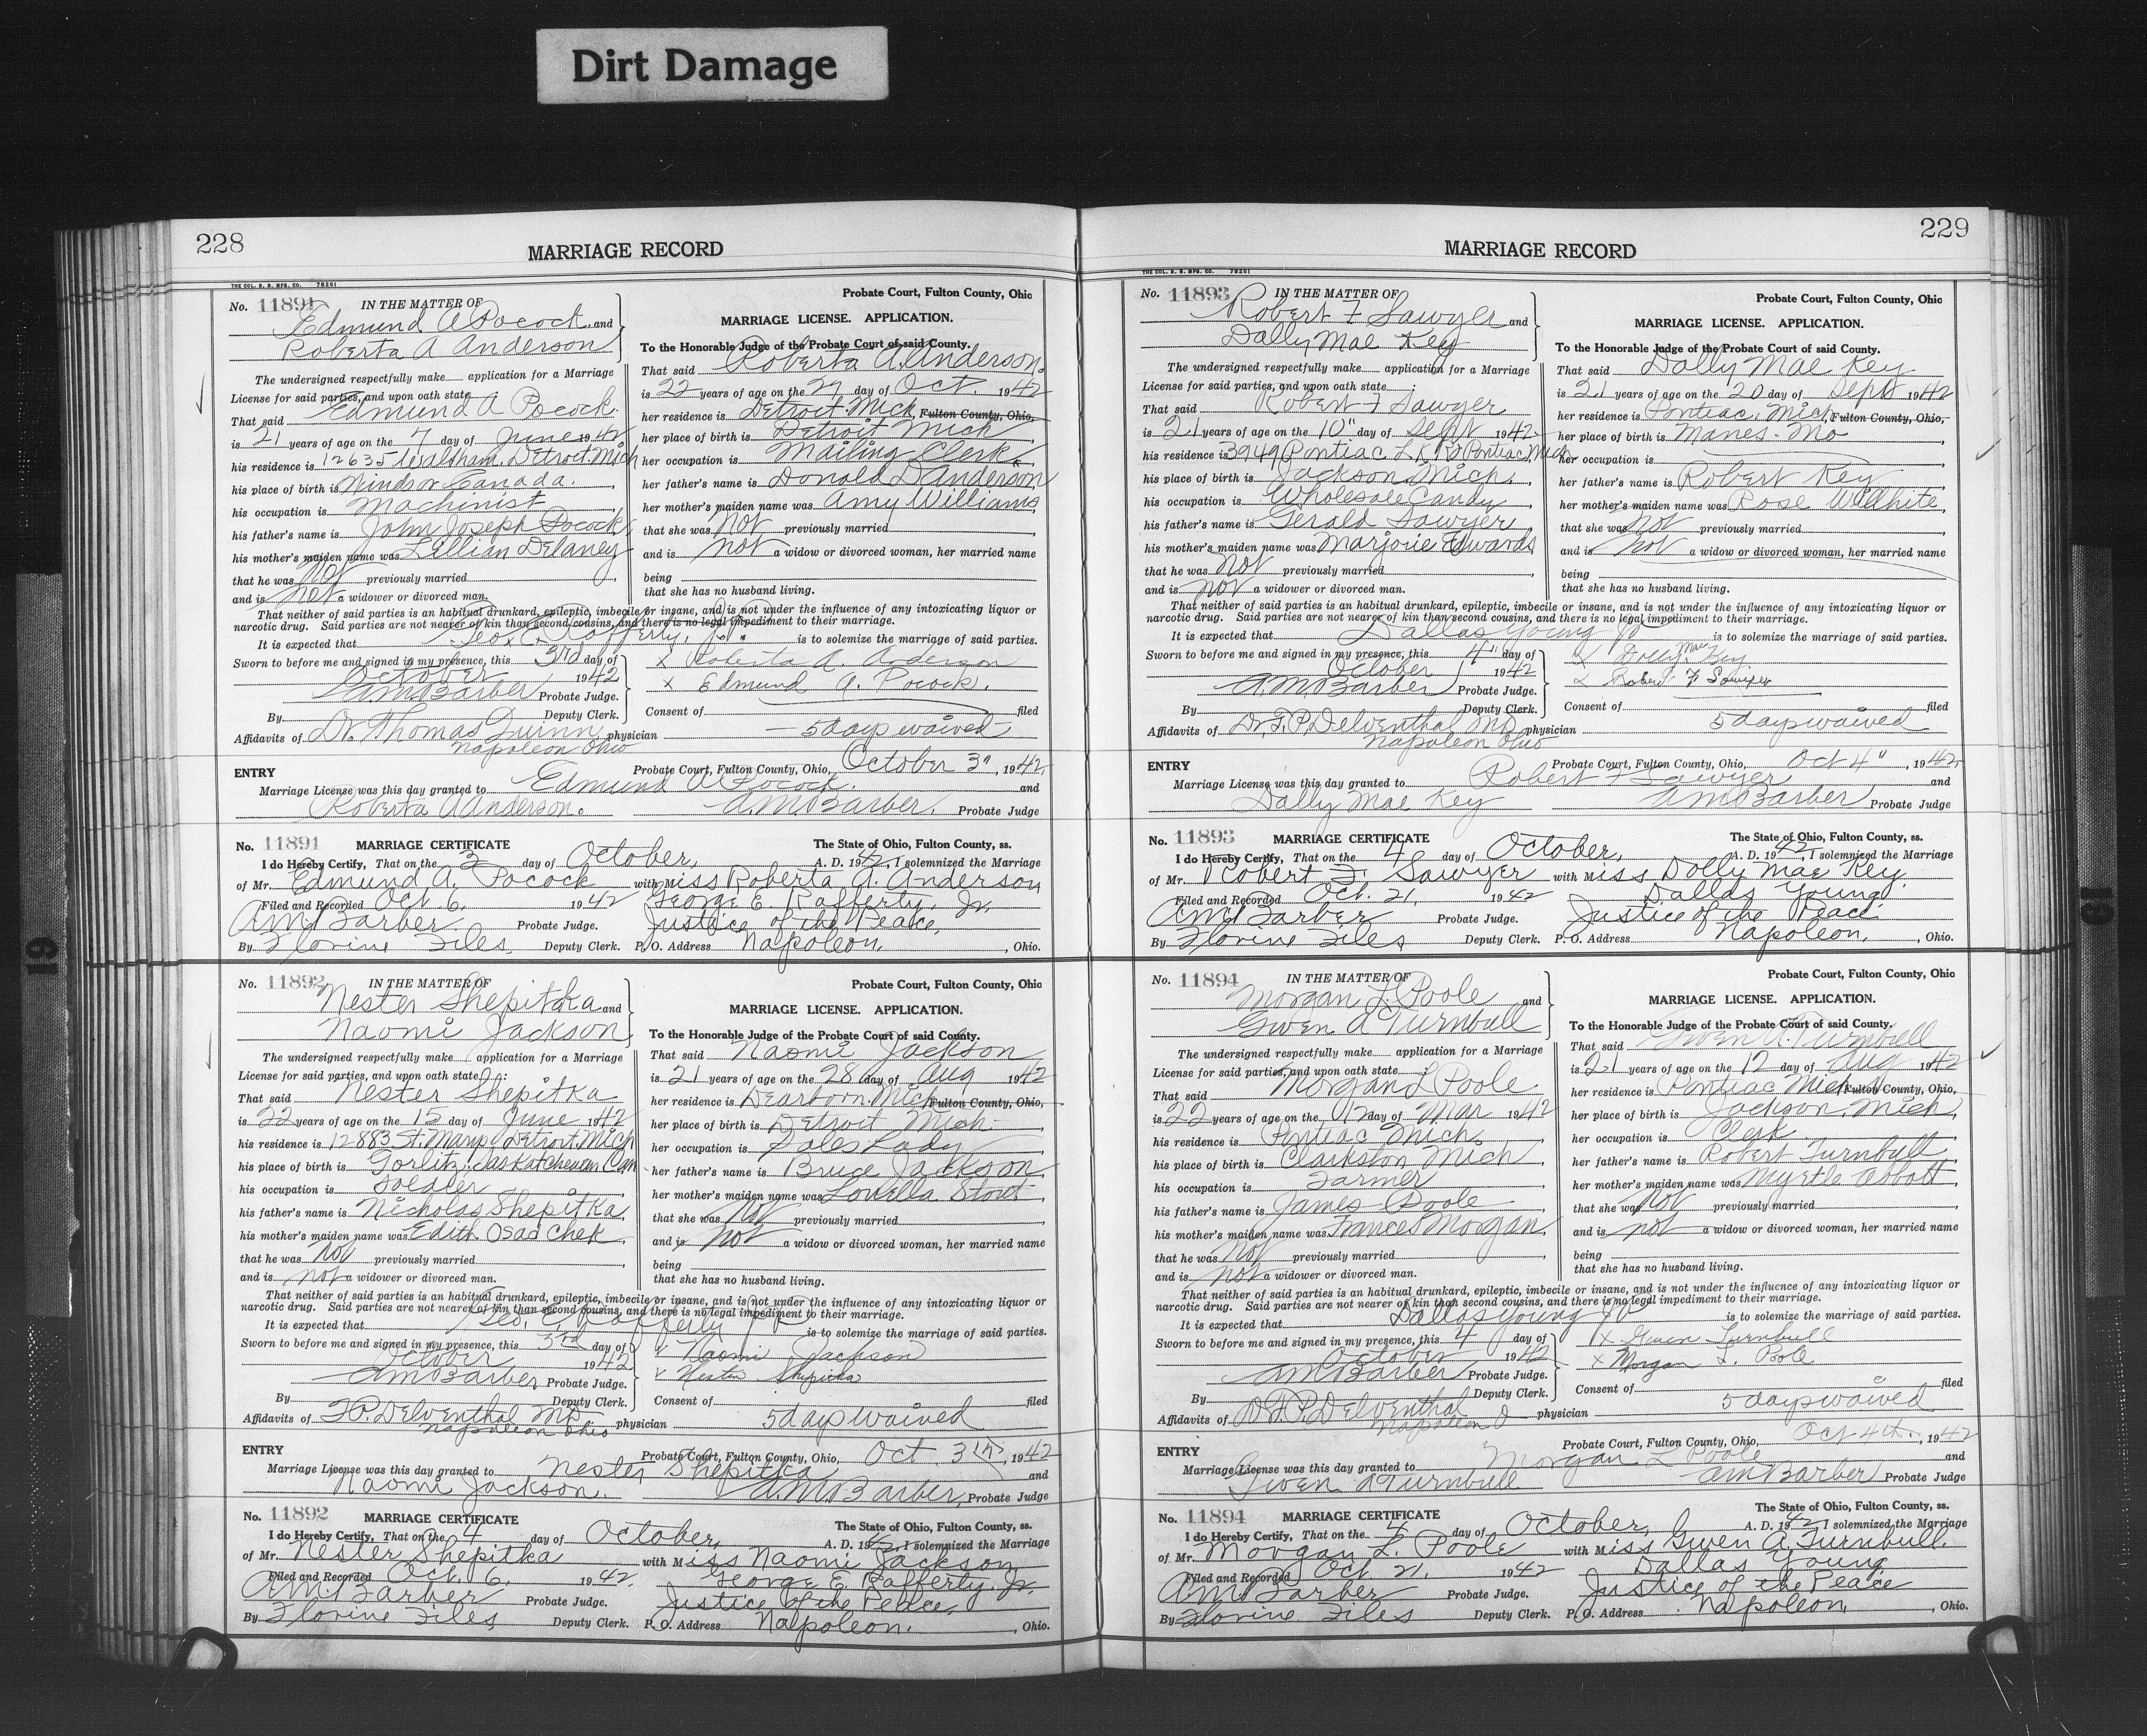 Dirt Damage
228
MARRIAGE RECORD
THE COL. B. B. MFG. CO. 78261
No. 11891 IN THE MATTER OF
Edmund A Pocock and
Roberta A Anderson
The undersigned respectfully make application for a Marriage
License for said parties, and upon oath state
That said Edmund A Pocock
is 21 years of age on the 7 day of June 1942
his residence is 12635 Walsham, Detroit Mich
his place of birth is Windsor Canada.
his occupation is Machinist
his father's name is John Joseph Pocock
his mother's maiden name was Lillian Delaney
that he was Not previously married
and is not a widower or divorced man.
Probate Court, Fulton County, Ohio
MARRIAGE LICENSE. APPLICATION.
To the Honorable Judge of the Probate Court of said County.
That said Roberta A. Anderson
is 22 years of age on the 27 day of Oct. 1942
her residence is Detroit Mich, Fulton County, Ohio,
her place of birth is Detroit Mich
her occupation is Mailing Clerk
her father's name is Donald D Anderson
her mother's maiden name was Amy Williams
that she was Not previously married
and is not a widow or divorced woman, her married name
being
that she has no husband living.
That neither of said parties is an habitual drunkard, epileptic, imbecile or insane, and is not under the influence of any intoxicating liquor or
narcotic drug. Said parties are not nearer of kin than second cousins, and there is no legal impediment to their marriage.
It is expected that Geo. E. Rafferty, J.P. is to solemize the marriage of said parties.
Sworn to before me and signed in my presence, this 3rd day of
October 1942
A.M. Barber Probate Judge.
By Deputy Clerk.
x Roberta A. Anderson
x Edmund A. Pocock.
Consent of filed
Affidavits of Dr. Thomas Quinn physician 5 days waived
Napoleon Ohio
ENTRY Probate Court, Fulton County, Ohio, October 3", 1942.
Marriage License was this day granted to Edmund A Pocock. and
Roberta A Anderson. A.M. Barber. Probate Judge
No. 11891 MARRIAGE CERTIFICATE The State of Ohio, Fulton County, ss.
I do Hereby Certify, That on the 3 day of October, A. D. 1942, I solemnized the Marriage
of Mr. Edmund A. Pocock with Miss Roberta A. Anderson
Filed and Recorded Oct. 6, 1942 George E. Rafferty, Jr.
A.M. Barber Probate Judge. Justice of the Peace,
By Florine Files, Deputy Clerk. P. O. Address Napoleon, Ohio.
No. 11892 IN THE MATTER OF
Nester Shepitka and
Naomi Jackson
The undersigned respectfully make application for a Marriage
License for said parties, and upon oath state :
That said Nester Shepitka
is 22 years of age on the 15 day of June 1942
his residence is 12883 St. Marys Detroit. Mich
his place of birth is Gorlitz, Saskatchewan Can
his occupation is Soldier
his father's name is Nicholas Shepitka
his mother's maiden name was Edith Osadchek
that he was not previously married
and is not a widower or divorced man.
Probate Court, Fulton County, Ohio
MARRIAGE LICENSE. APPLICATION.
To the Honorable Judge of the Probate Court of said County.
That said Naomi Jackson
is 21 years of age on the 28 day of Aug 1942
her residence is Dearborn. Mich Fulton County, Ohio,
her place of birth is Detroit Mich
her occupation is Sales Lady
her father's name is Bruce Jackson
her mother's maiden name was Lovella Stout
that she was Not previously married
and is not a widow or divorced woman, her married name
being
that she has no husband living.
That neither of said parties is an habitual drunkard, epileptic, imbecile or insane, and is not under the influence of any intoxicating liquor or
narcotic drug. Said parties are not nearer of kin than second cousins, and there is no legal impediment to their marriage.
It is expected that Geo. E. Rafferty JP is to solemize the marriage of said parties.
Sworn to before me and signed in my presence, this 3rd day of
October 1942
A.M. Barber Probate Judge.
By Deputy Clerk.
Naomi Jackson
Nester Shepitka
Consent of filed
Affidavits of F.P. Delventhal MD physician 5 days waived
Napoleon Ohio
ENTRY Probate Court, Fulton County, Ohio, Oct 3, 1942
Marriage License was this day granted to Nester Shepitka and
Naomi Jackson. A.M. Barber, Probate Judge
No. 11892 MARRIAGE CERTIFICATE The State of Ohio, Fulton County, ss.
I do Hereby Certify, That on the 4 day of October, A. D. 1942, I solemnized the Marriage
of Mr. Nester Shepitka with Miss Naomi Jackson
Filed and Recorded Oct. 6, 1942. George E. Rafferty, Jr.
A.M. Barber Probate Judge. Justice of the Peace,
By Florine Files, Deputy Clerk. P. O. Address Napoleon. , Ohio.
229
MARRIAGE RECORD
THE COL. B. B. MFG. CO. 78261
No. 11893 IN THE MATTER OF
Robert F Sawyer and
Dally Mae Key
The undersigned respectfully make application for a Marriage
License for said parties, and upon oath state :
That said Robert F Sawyer
is 21 years of age on the 10" day of Sept 1942
his residence is 3949 Pontiac Lk Rd Pontiac Mich
his place of birth is Jackson Mich.
his occupation is Wholesale Candy
his father's name is Gerald Sawyer
his mother's maiden name was Marjorie Edwards
that he was Not previously married
and is not a widower or divorced man.
Probate Court, Fulton County, Ohio
MARRIAGE LICENSE. APPLICATION.
To the Honorable Judge of the Probate Court of said County.
That said Dally Mae Key
is 21 years of age on the 20 day of Sept 1942
her residence is Pontiac, Mich, Fulton County, Ohio,
her place of birth is Manes. Mo
her occupation is
her father's name is Robert Key
her mother's maiden name was Rose Wilhite
that she was not previously married
and is not a widow or divorced woman, her married name
being
that she has no husband living.
That neither of said parties is an habitual drunkard, epileptic, imbecile or insane, and is not under the influence of any intoxicating liquor or
narcotic drug. Said parties are not nearer of kin than second cousins, and there is no legal impediment to their marriage.
It is expected that Dallas Young JP is to solemize the marriage of said parties.
Sworn to before me and signed in my presence, this 4" day of
October 1942
A.M. Barber Probate Judge.
By Deputy Clerk.
x Dolly Mae Key
x Robert F Sawyer
Consent of filed
Affidavits of Dr. F.P. Delventhal MD physician 5 days waived
Napoleon Ohio
ENTRY Probate Court, Fulton County, Ohio, Oct 4", 1942.
Marriage License was this day granted to Robert F Sawyer and
Dally Mae Key A.M. Barber Probate Judge
No. 11893 MARRIAGE CERTIFICATE The State of Ohio, Fulton County, ss.
I do Hereby Certify, That on the 4 day of October, A. D. 1942, I solemnized the Marriage
of Mr. Robert F. Sawyer with Miss Dolly Mae Key.
Filed and Recorded Oct. 21, 1942 Dallas Young
A.M. Barber Probate Judge. Justice of the Peace
By Florine Files, Deputy Clerk. P. O. Address Napoleon, , Ohio.
No. 11894 IN THE MATTER OF
Morgan L. Poole and
Gwen A Turnbull
The undersigned respectfully make application for a Marriage
License for said parties, and upon oath state :
That said Morgan L Poole
is 22 years of age on the 12 day of Mar 1942
his residence is Pontiac Mich.
his place of birth is Clarkston Mich
his occupation is Farmer
his father's name is James Poole
his mother's maiden name was Frances Morgan
that he was Not previously married
and is not a widower or divorced man.
Probate Court, Fulton County, Ohio
MARRIAGE LICENSE. APPLICATION.
To the Honorable Judge of the Probate Court of said County.
That said Gwen A. Turnbull
is 21 years of age on the 12 day of Aug 1942
her residence is Pontiac Mich Fulton County, Ohio,
her place of birth is Jackson, Mich
her occupation is Clerk
her father's name is Robert Turnbull
her mother's maiden name was Myrtle Abbott
that she was not previously married
and is not a widow or divorced woman, her married name
being
that she has no husband living.
That neither of said parties is an habitual drunkard, epileptic, imbecile or insane, and is not under the influence of any intoxicating liquor or
narcotic drug. Said parties are not nearer of kin than second cousins, and there is no legal impediment to their marriage.
It is expected that Dallas Young JP is to solemize the marriage of said parties.
Sworn to before me and signed in my presence, this 4 day of
October 1942
A.M. Barber Probate Judge.
By Deputy Clerk.
x Gwen Turnbull
x Morgan L. Poole
Consent of filed
Affidavits of Dr F.P. Delventhal physician 5 days waived
Napoleon O
ENTRY Probate Court, Fulton County, Ohio, Oct 4th, 1942
Marriage License was this day granted to Morgan L Poole and
Gwen A Turnbull A.M. Barber Probate Judge
No. 11894 MARRIAGE CERTIFICATE The State of Ohio, Fulton County, ss.
I do Hereby Certify, That on the 4 day of October, A. D. 1942, I solemnized the Marriage
of Mr. Morgan L. Poole with Miss Gwen A. Turnbull.
Filed and Recorded Oct. 21, 1942 Dallas Young
A.M. Barber Probate Judge. Justice of the Peace
By Florine Files Deputy Clerk. P. O. Address Napoleon, , Ohio.